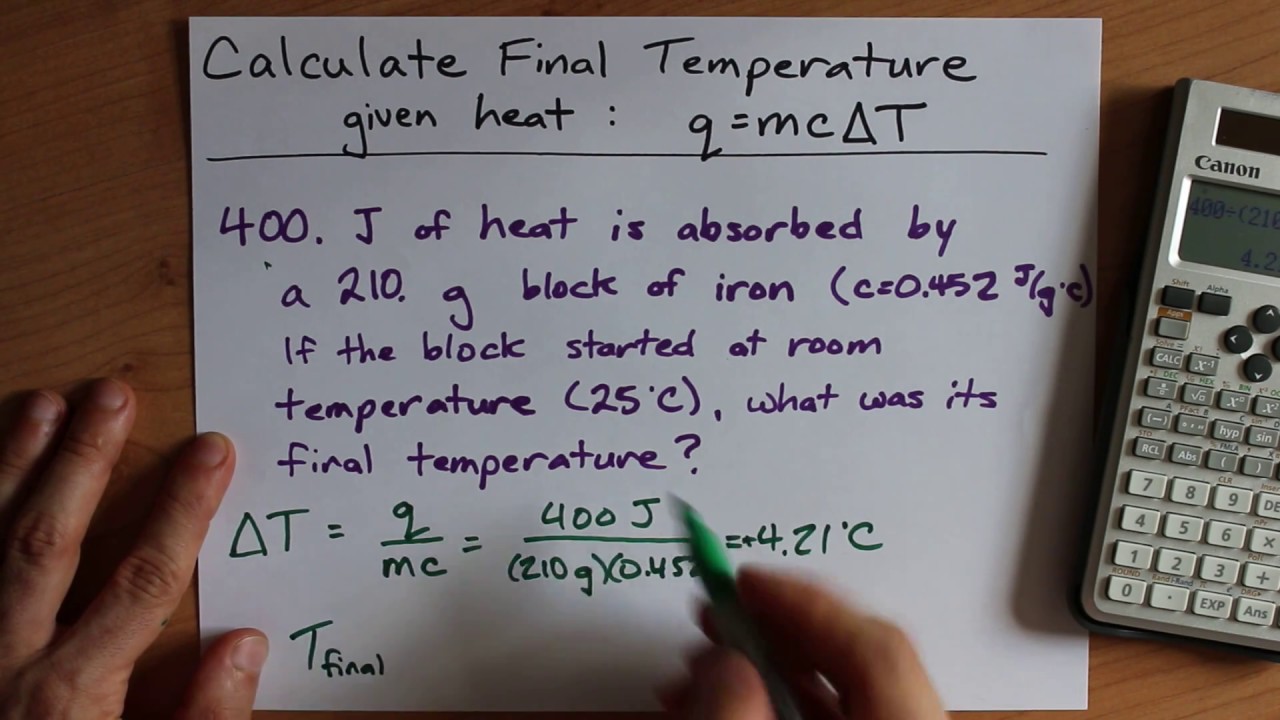 Calculate Final Temperature
given heat : q=mcΔT
400. J of heat is absorbed by
a 210. g block of iron (c=0.452 J/g·c)
If the block started at room
temperature (25°C), what was its
final temperature?
ΔT = q/mc = 400 J/(210g)(0.452 =+4.21°C
Tfinal
Canon
400÷(210
4.2
Shift Alpha
Apps
CALC
RCL Abs ( )
hyp sin
7 8 9 DE
4 5 6 ×
1 2 3 +
0 · EXP Ans